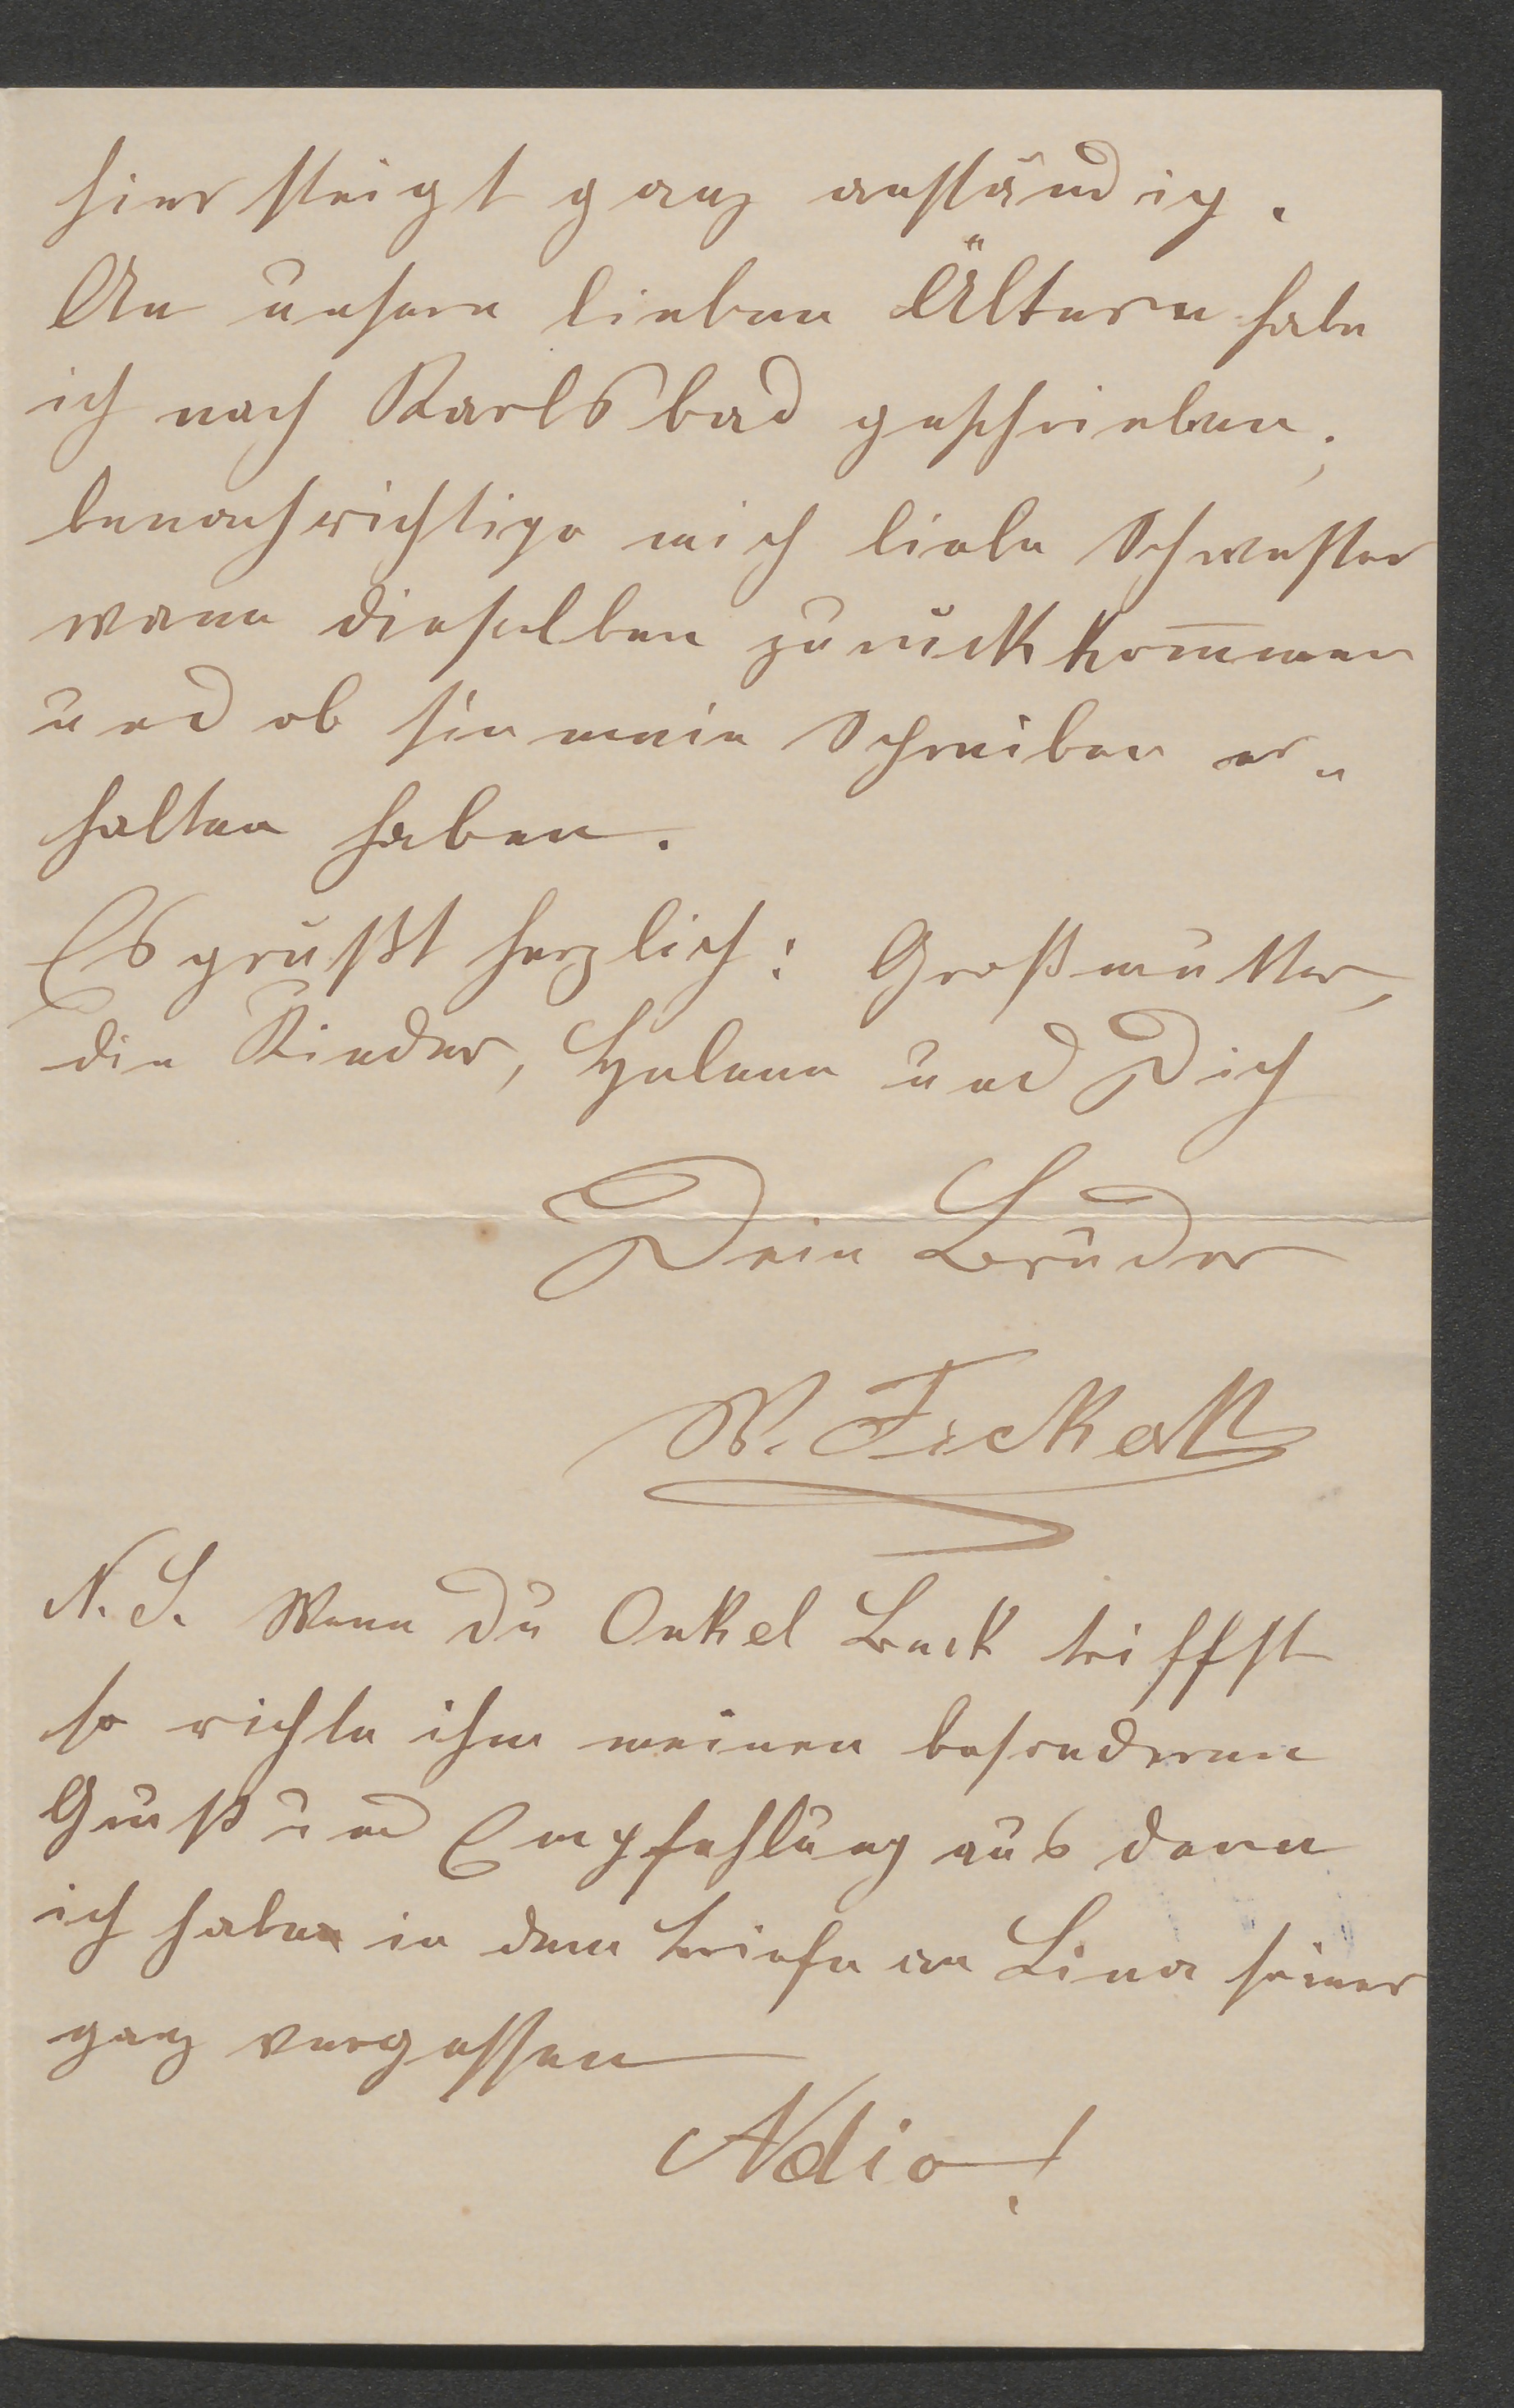 hier steigt ganz anständig.
An unsere lieben Ältern habe
ich nach Karlsbad geschrieben;
benachrichtige mich liebe Schwester
wann dieselben zurückkom̄men
und ob sie mein Schreiben er-
halten haben.
Es grüßt herzlich: Großmutter,
die Kinder, Helene und Dich
Dein Bruder
W. Fickert
N.S. Wenn Du Onkel Beck triffst
so richte ihm meinen besonderen
Gruß und Empfehlung aus denn
ich habe in dem Briefe an Lina seiner
ganz vergessen
Adio!